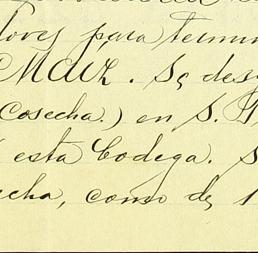 lores para termin
MAIZ. Se des
Cosecha.) en S.
esta Bodega. S
cha, como de 1